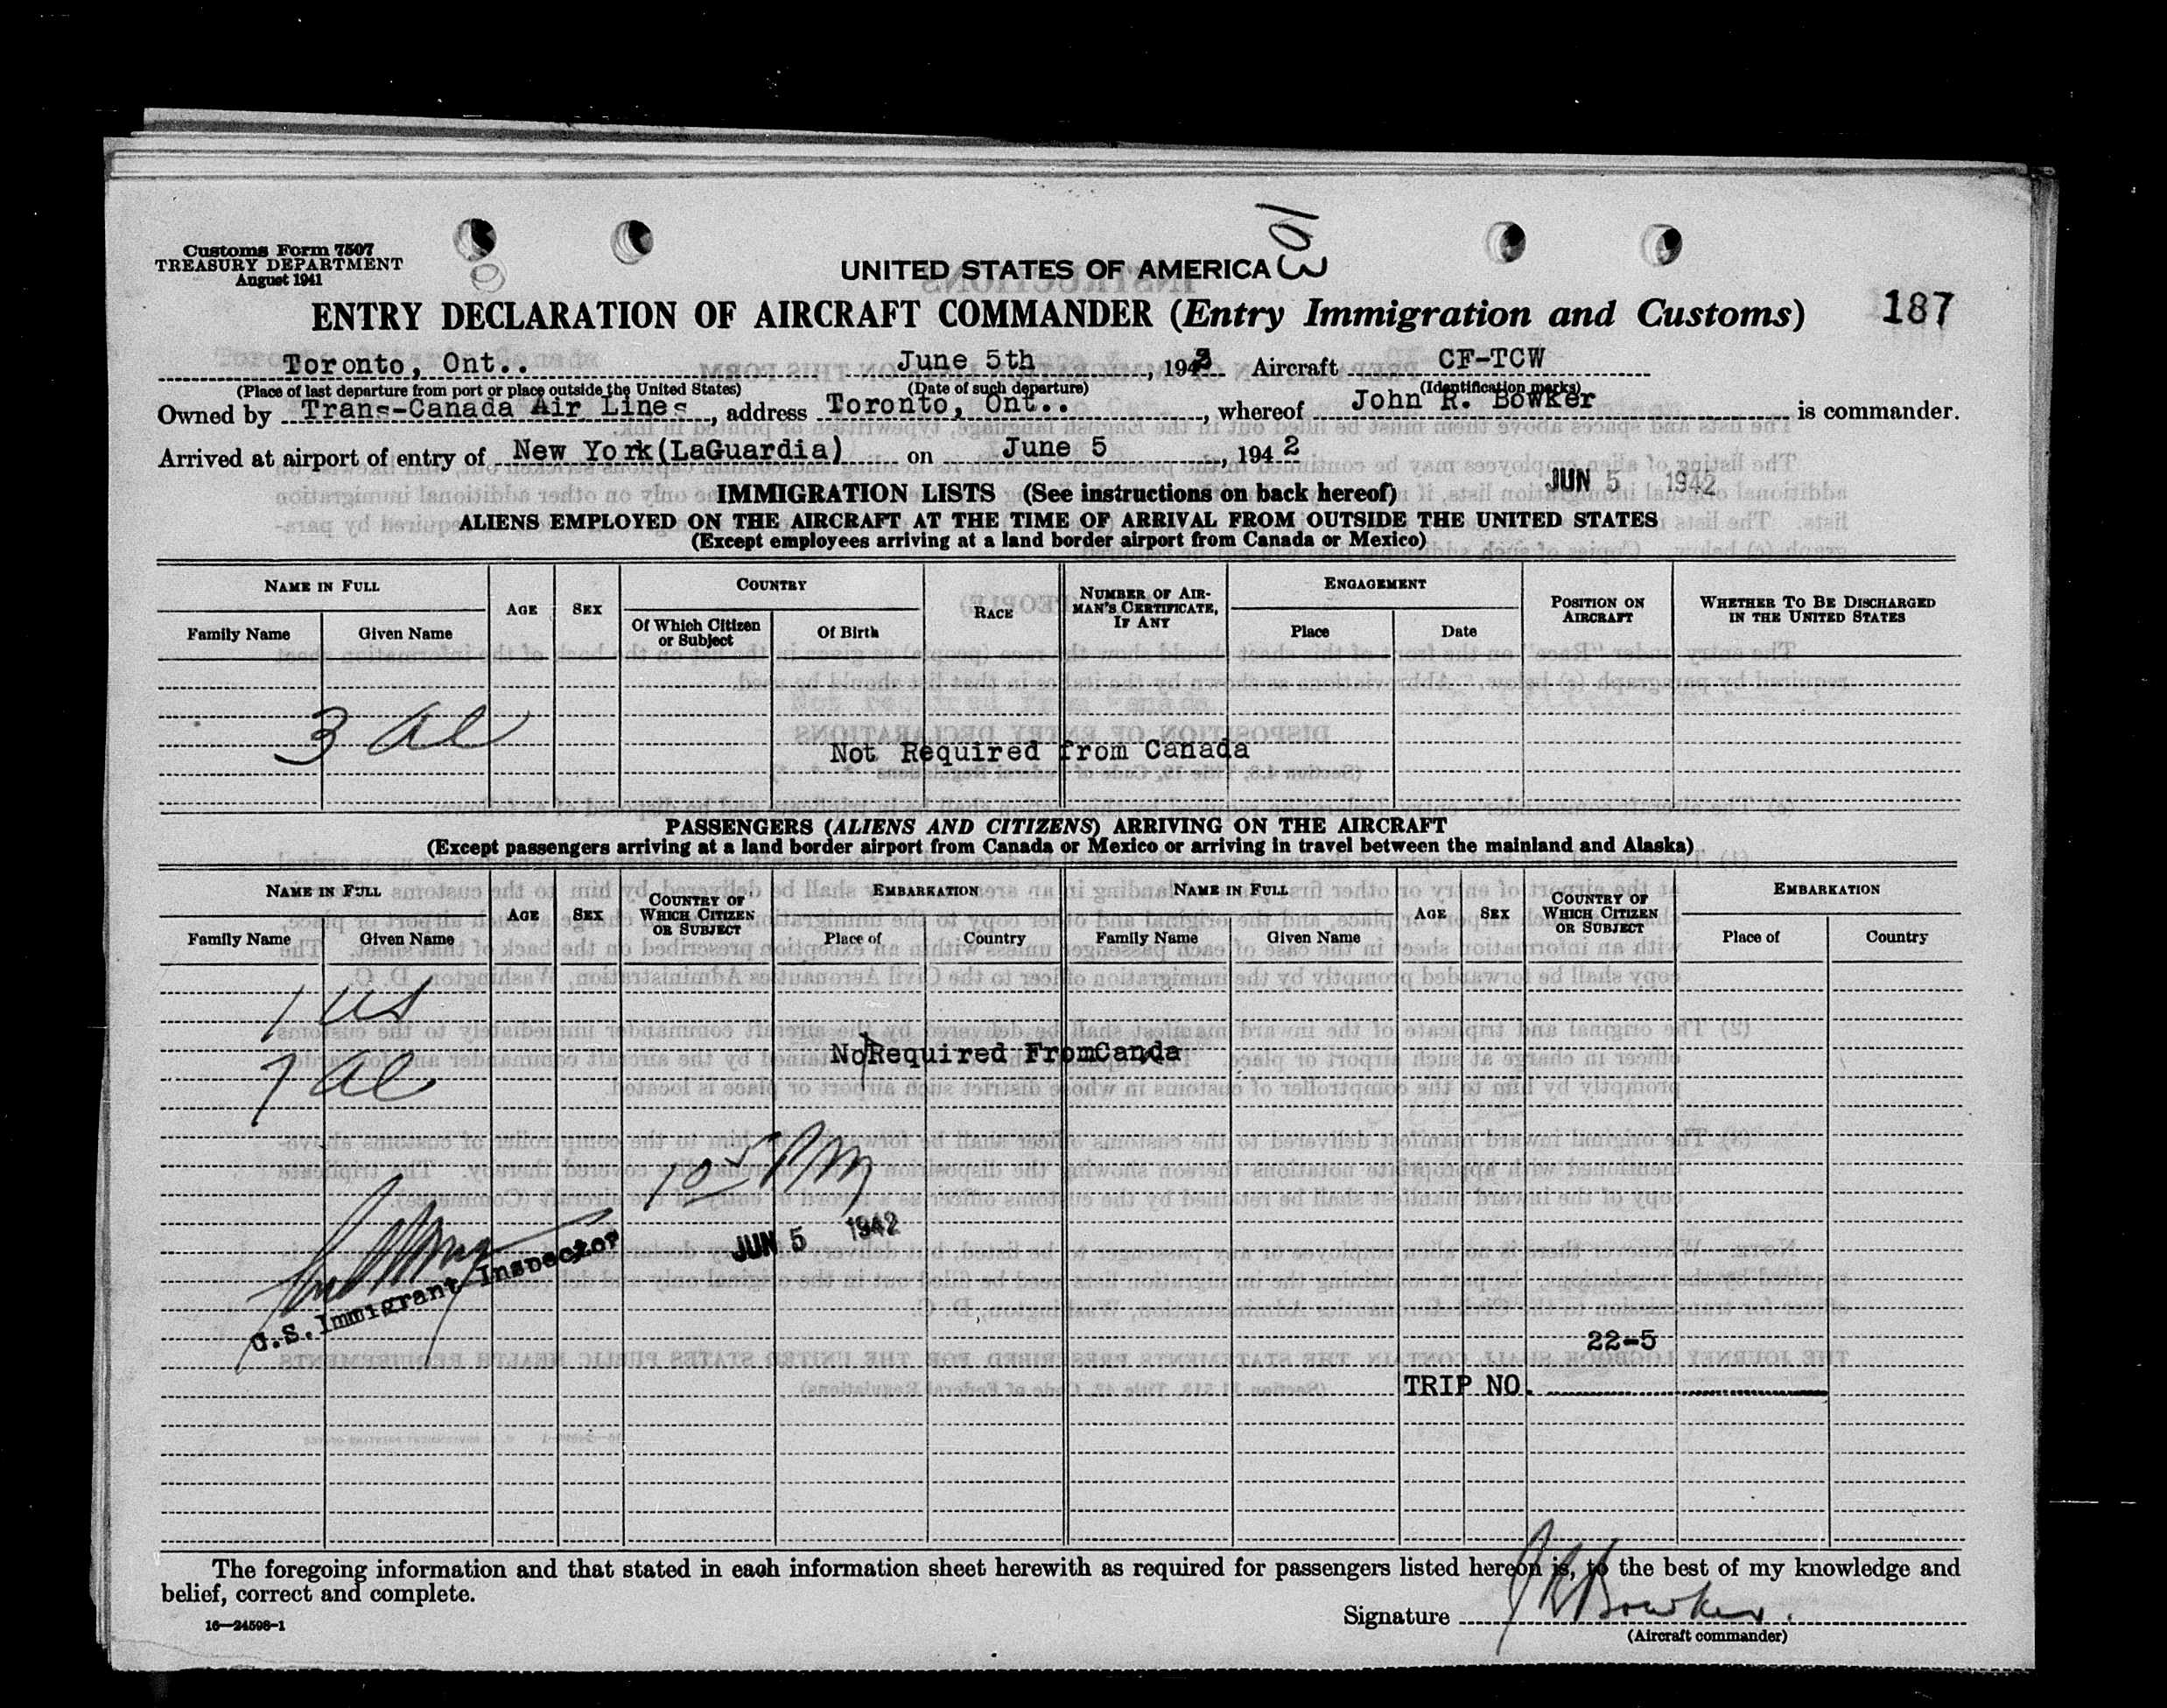 Customs Form 7507
TREASURY DEPARTMENT
August 1941
301
UNITED STATES OF AMERICA
ENTRY DECLARATION OF AIRCRAFT COMMANDER (Entry Immigration and Customs)
187
Toronto, Ont.. June 5th, 1942 Aircraft CF-TCW
(Place of last departure from port or place outside the United States) (Date of such departure) (Identification marks)
Owned by Trans-Canada Air Lines, address Toronto, Ont.., whereof John R. Bowker is commander.
Arrived at airport of entry of New York(LaGuardia) on June 5, 1942
JUN 5 1942
IMMIGRATION LISTS (See instructions on back hereof)
ALIENS EMPLOYED ON THE AIRCRAFT AT THE TIME OF ARRIVAL FROM OUTSIDE THE UNITED STATES
(Except employees arriving at a land border airport from Canada or Mexico)
NAME IN FULL
Family Name Given Name
AGE
SEX
COUNTRY
Of Which Citizen or Subject
Of Birth
RACE
NUMBER OF AIR-
MAN'S CERTIFICATE,
IF ANY
ENGAGEMENT
Place Date
POSITION ON
AIRCRAFT
WHETHER TO BE DISCHARGED
IN THE UNITED STATES
3 al
Not Required from Canada
PASSENGERS (ALIENS AND CITIZENS) ARRIVING ON THE AIRCRAFT
(Except passengers arriving at a land border airport from Canada or Mexico or arriving in travel between the mainland and Alaska)
NAME IN FULL
Family Name Given Name
AGE
SEX
COUNTRY OF
WHICH CITIZEN
OR SUBJECT
EMBARKATION
Place of Country
NAME IN FULL
Family Name Given Name
AGE
SEX
COUNTRY OF
WHICH CITIZEN
OR SUBJECT
EMBARKATION
Place of Country
1 US
7 al
NotRequired FromCanda
10 5 PM
JUN 5 1942
U.S. Immigrant Inspector
22-5
TRIP NO.
The foregoing information and that stated in each information sheet herewith as required for passengers listed hereon is, to the best of my knowledge and
belief, correct and complete.
16—24598-1
Signature J R Bowker.
(Aircraft commander)